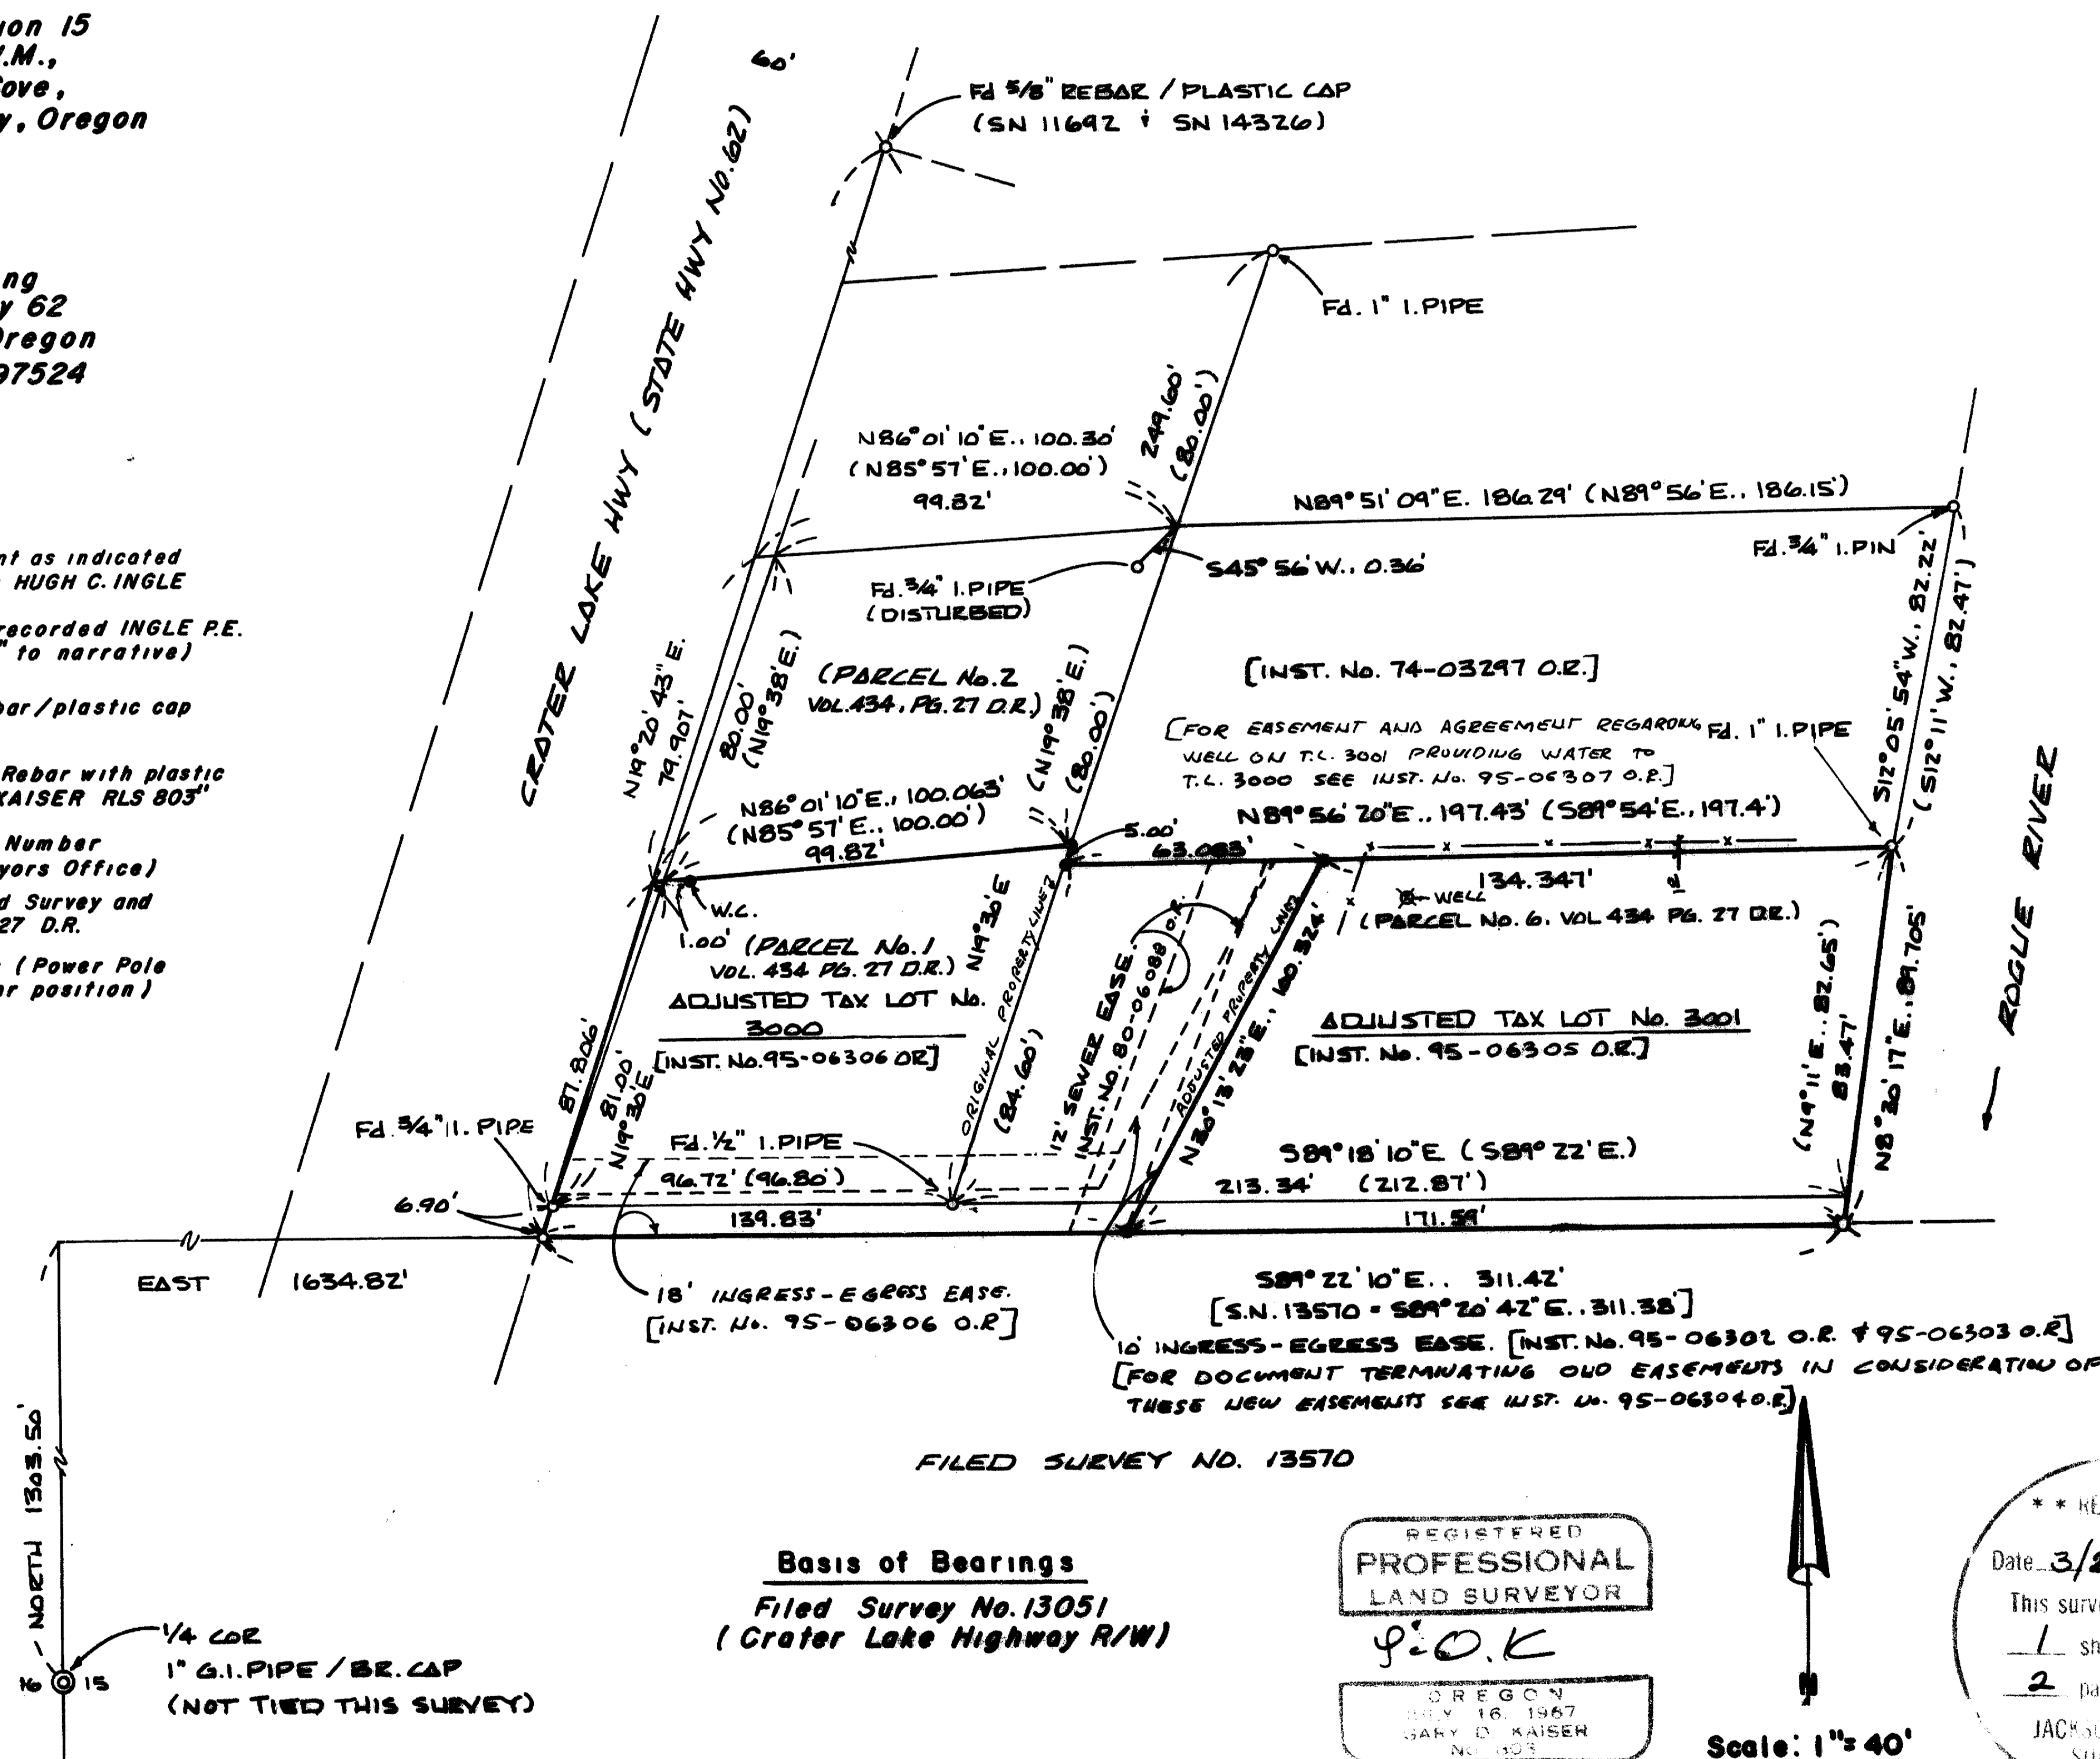 ion 15
V.M.,
ove,
y, Oregon
ng
y 62
Oregon
97524
nt as indicated
HUGH C. INGLE
recorded INGLE P.E.
" to narrative)
bar/plastic cap
Rebar with plastic
KAISER RLS 803"
Number
yors Office)
d Survey and
27 D.R.
(Power Pole
or position)
60'
CRATER LAKE HWY (STATE HWY No.62)
Fd 5/8" REBAR / PLASTIC CAP
(SN 11692 & SN 14326)
Fd. 1" I.PIPE
249.60'
(80.00')
N86°01'10"E., 100.30'
(N85°57'E., 100.00')
99.82'
N89°51'09"E. 186.29' (N89°56'E., 186.15')
Fd. 3/4" I.PIN
S45°56'W., 0.36'
Fd. 3/4" I.PIPE
(DISTURBED)
S12°05'54"W., 82.22'
(S12°11'W., 82.47')
N19°20'43"E.
79.907'
80.00'
(N19°38'E.)
(PARCEL No.2
VOL.434, PG. 27 D.R.)
(N19°38'E.)
(80.00')
[INST. No. 74-03297 O.R.]
[FOR EASEMENT AND AGREEMENT REGARDING
WELL ON T.L. 3001 PROVIDING WATER TO
T.L. 3000 SEE INST. No. 95-06307 O.R.]
Fd. 1" I.PIPE
ROGUE RIVER
N86°01'10"E., 100.063'
(N85°57'E., 100.00')
99.82'
N89°56'20"E., 197.43' (S89°54'E., 197.4')
5.00'
63.083'
134.347'
12'
WELL
(PARCEL No. 6, VOL 434 PG. 27 D.R.)
W.C.
1.00'
(PARCEL No. 1
VOL. 434 PG. 27 D.R.)
ADJUSTED TAX LOT No.
3000
[INST. No. 95-06306 OR]
N19°30'E
ORIGINAL PROPERTY LINE
(84.60')
12' SEWER EASE.
INST. No. 80-06088 O.R.
ADJUSTED PROPERTY LINE
N30°13'23"E., 100.324'
ADJUSTED TAX LOT No. 3001
[INST. No. 95-06305 O.R.]
(N9°11'E., 82.65')
83.47'
N8°20'17"E., 89.705'
87.806'
81.00'
N19°30'E
Fd. 3/4" I. PIPE
Fd. 1/2" I.PIPE
S89°18'10"E (S89°22'E.)
96.72' (96.80')
213.34' (212.87')
6.90'
139.83'
171.59'
EAST 1634.82'
18' INGRESS-EGRESS EASE.
[INST. No. 95-06306 O.R]
S89°22'10"E.. 311.42'
[S.N. 13570 = S89°20'42"E., 311.38']
10' INGRESS-EGRESS EASE. [INST. No. 95-06302 O.R. & 95-06303 O.R]
[FOR DOCUMENT TERMINATING OLD EASEMENTS IN CONSIDERATION OF
THESE NEW EASEMENTS SEE INST. No. 95-06304 O.R.]
FILED SURVEY NO. 13570
NORTH 1303.50'
1/4 COR
1" G.I.PIPE / BR. CAP
(NOT TIED THIS SURVEY)
16 15
Basis of Bearings
Filed Survey No. 13051
(Crater Lake Highway R/W)
REGISTERED
PROFESSIONAL
LAND SURVEYOR
OREGON
JULY 16, 1967
GARY D. KAISER
No. 803
N
Scale: 1"= 40'
* * RE
Date 3/2
This surv
1 sh
2 pa
JACKS